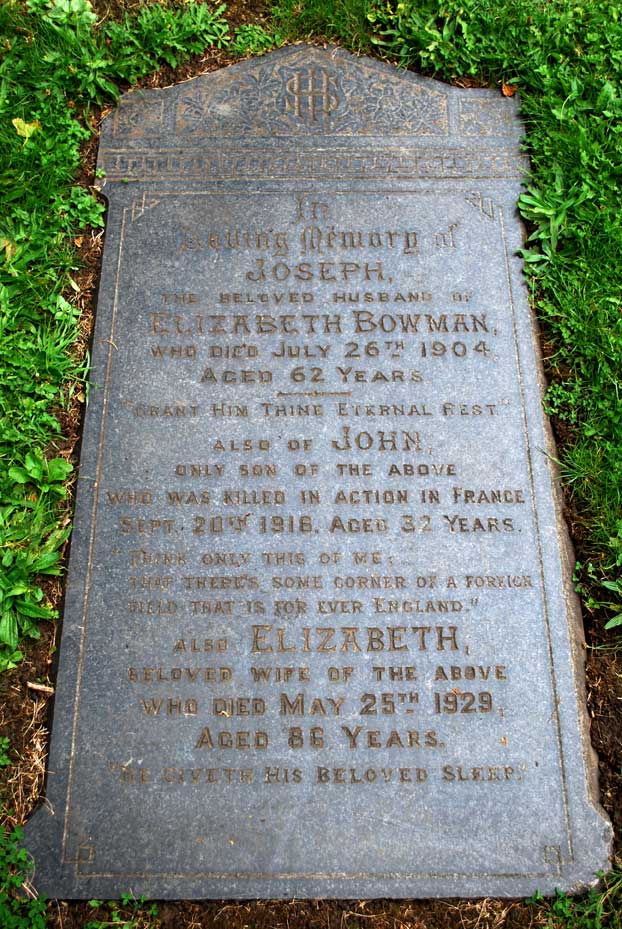 IHS
In
Loving Memory of
JOSEPH,
THE BELOVED HUSBAND OF
ELIZABETH BOWMAN,
WHO DIED JULY 26TH 1904,
AGED 62 YEARS.
"GRANT HIM THINE ETERNAL REST"
ALSO OF JOHN,
ONLY SON OF THE ABOVE
WHO WAS KILLED IN ACTION IN FRANCE
SEPT. 20TH 1918. AGED 32 YEARS.
"THINK ONLY THIS OF ME;
THAT THERE'S SOME CORNER OF A FOREIGN
FIELD THAT IS FOR EVER ENGLAND."
ALSO ELIZABETH,
BELOVED WIFE OF THE ABOVE
WHO DIED MAY 25TH 1929,
AGED 86 YEARS.
"HE GIVETH HIS BELOVED SLEEP."